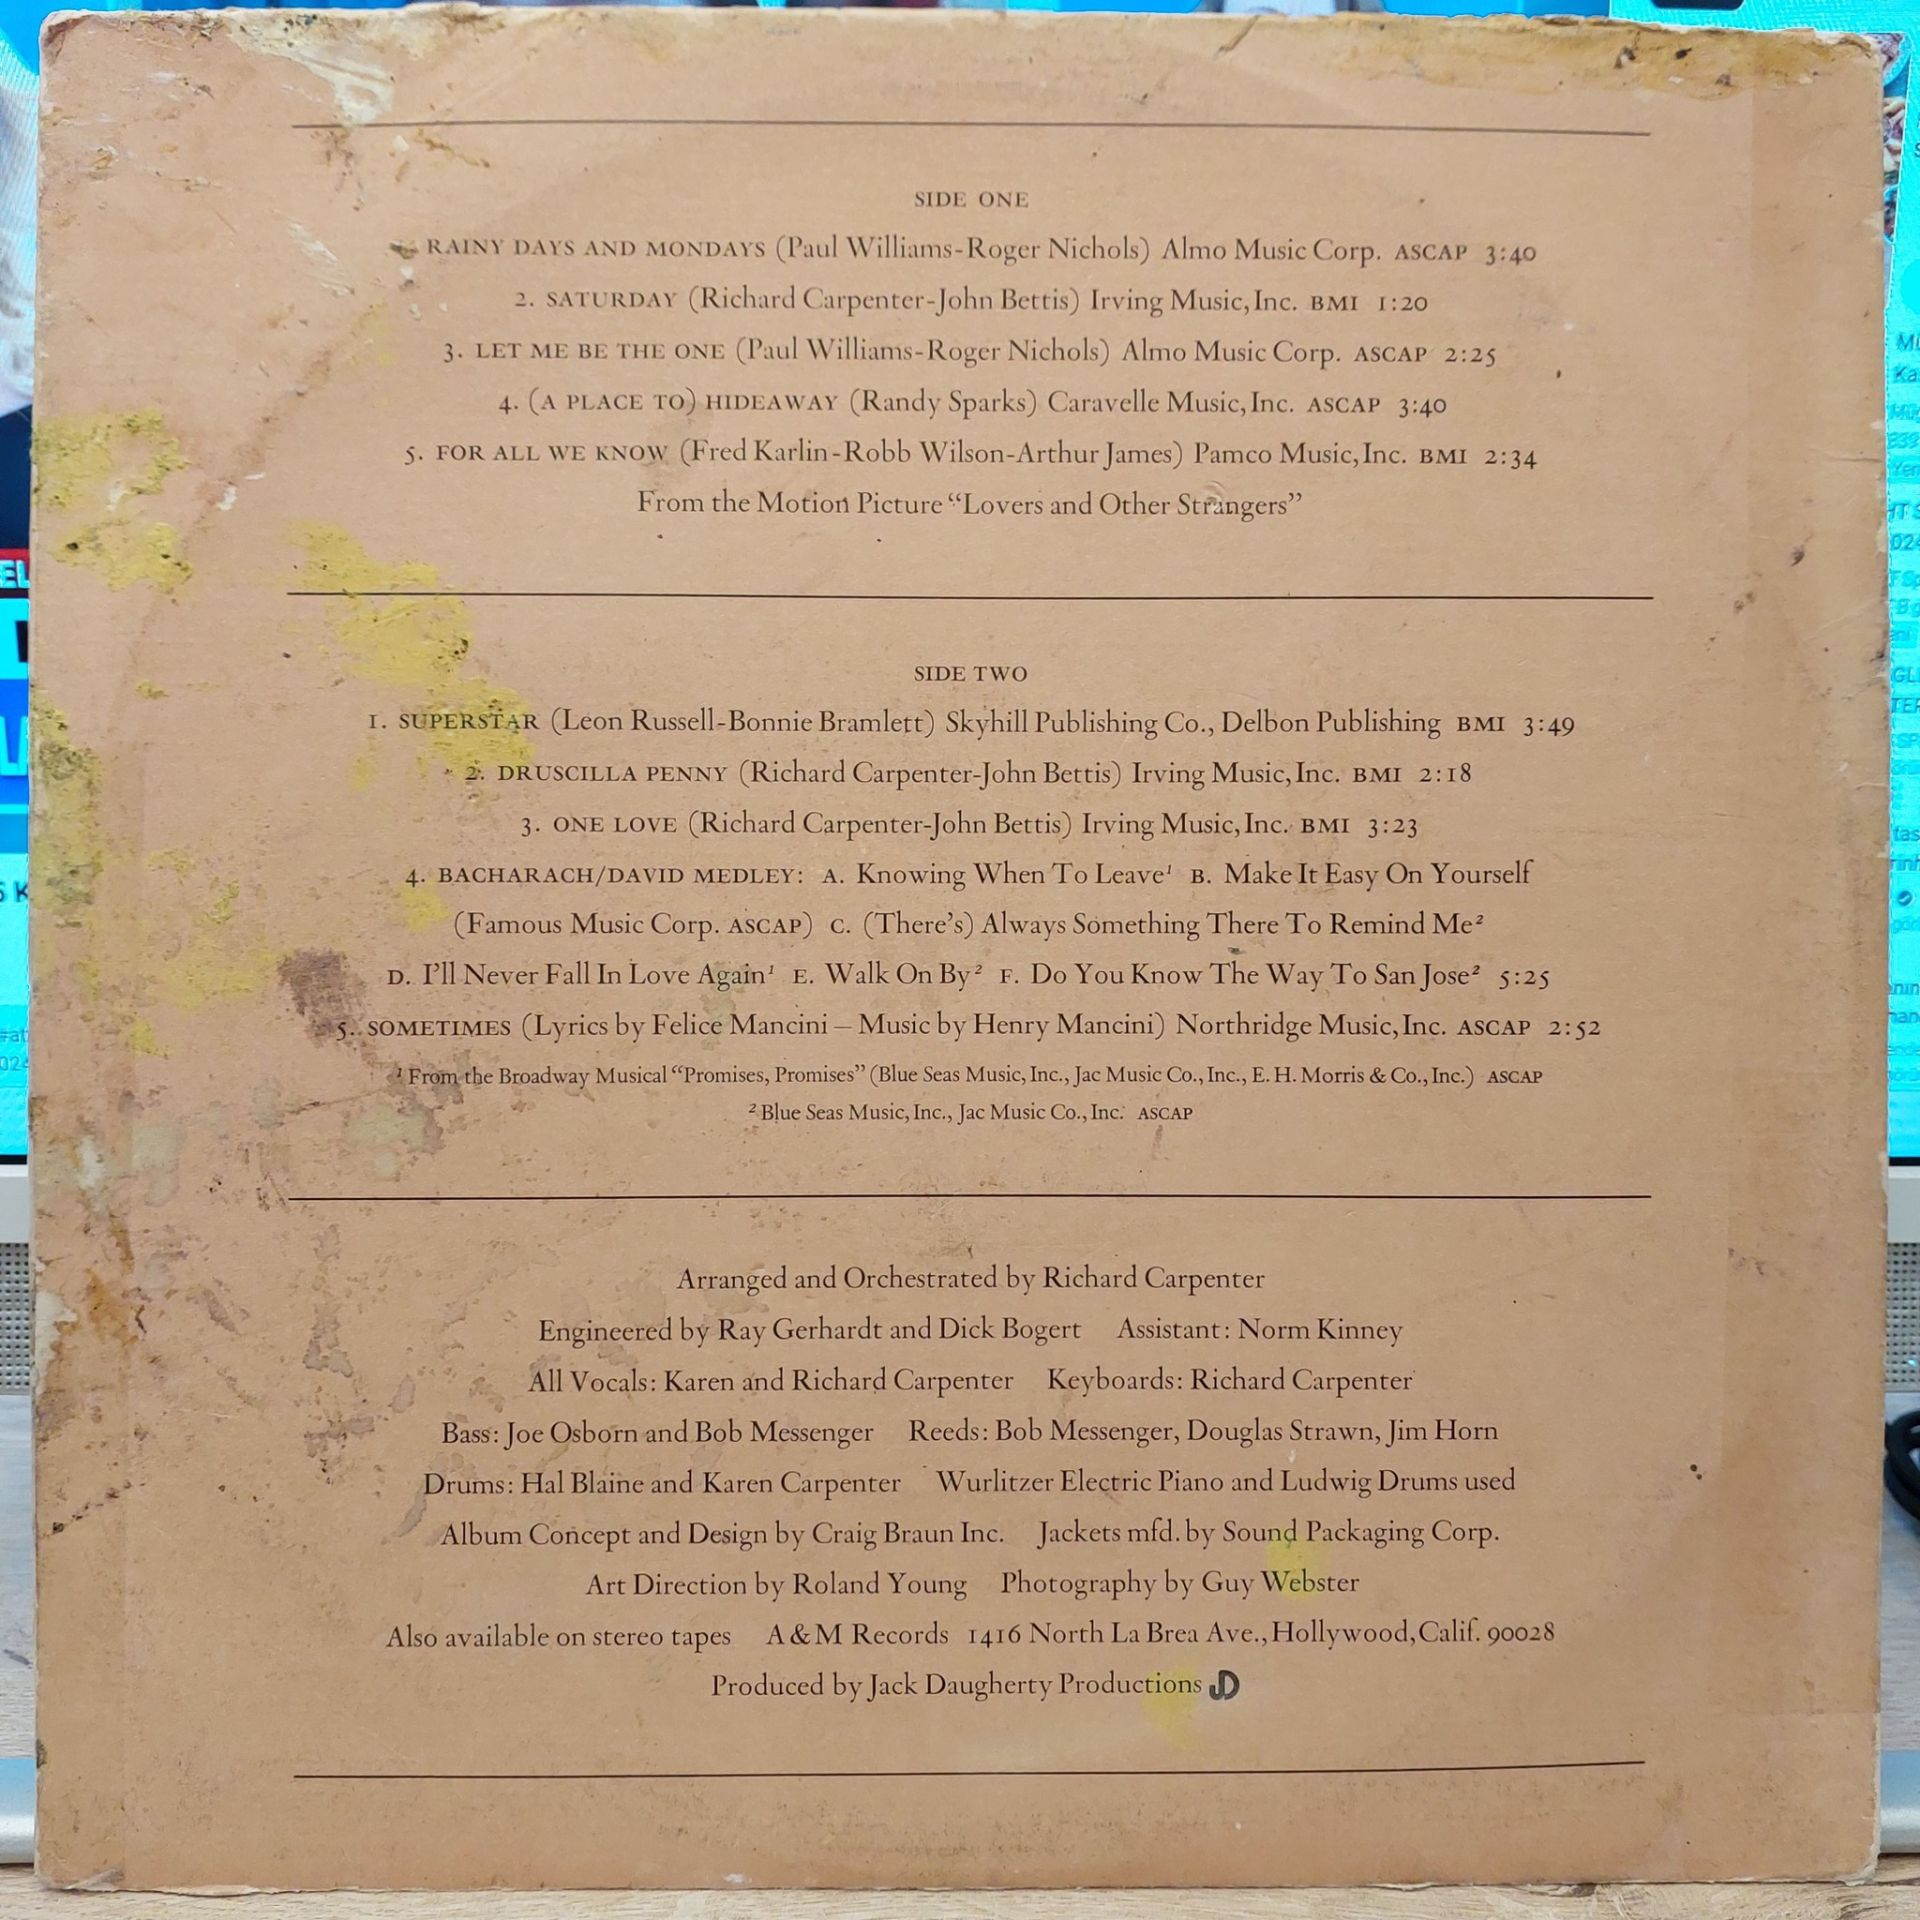 SIDE ONE
RAINY DAYS AND MONDAYS (Paul Williams-Roger Nichols) Almo Music Corp. ASCAP 3:40
2. SATURDAY (Richard Carpenter-John Bettis) Irving Music, Inc. BMI 1:20
3. LET ME BE THE ONE (Paul Williams-Roger Nichols) Almo Music Corp. ASCAP 2:25
4. (A PLACE TO) HIDEAWAY (Randy Sparks) Caravelle Music, Inc. ASCAP 3:40
5. FOR ALL WE KNOW (Fred Karlin-Robb Wilson-Arthur James) Pamco Music, Inc. BMI 2:34
From the Motion Picture “Lovers and Other Strangers”
SIDE TWO
1. SUPERSTAR (Leon Russell-Bonnie Bramlett) Skyhill Publishing Co., Delbon Publishing BMI 3:49
2. DRUSCILLA PENNY (Richard Carpenter-John Bettis) Irving Music, Inc. BMI 2:18
3. ONE LOVE (Richard Carpenter-John Bettis) Irving Music, Inc. BMI 3:23
4. BACHARACH/DAVID MEDLEY: A. Knowing When To Leave¹ B. Make It Easy On Yourself
(Famous Music Corp. ASCAP) C. (There’s) Always Something There To Remind Me²
D. I’ll Never Fall In Love Again¹ E. Walk On By² F. Do You Know The Way To San Jose² 5:25
5. SOMETIMES (Lyrics by Felice Mancini – Music by Henry Mancini) Northridge Music, Inc. ASCAP 2:52
¹ From the Broadway Musical “Promises, Promises” (Blue Seas Music, Inc., Jac Music Co., Inc., E. H. Morris & Co., Inc.) ASCAP
² Blue Seas Music, Inc., Jac Music Co., Inc. ASCAP
Arranged and Orchestrated by Richard Carpenter
Engineered by Ray Gerhardt and Dick Bogert Assistant: Norm Kinney
All Vocals: Karen and Richard Carpenter Keyboards: Richard Carpenter
Bass: Joe Osborn and Bob Messenger Reeds: Bob Messenger, Douglas Strawn, Jim Horn
Drums: Hal Blaine and Karen Carpenter Wurlitzer Electric Piano and Ludwig Drums used
Album Concept and Design by Craig Braun Inc. Jackets mfd. by Sound Packaging Corp.
Art Direction by Roland Young Photography by Guy Webster
Also available on stereo tapes A&M Records 1416 North La Brea Ave., Hollywood, Calif. 90028
Produced by Jack Daugherty Productions JD